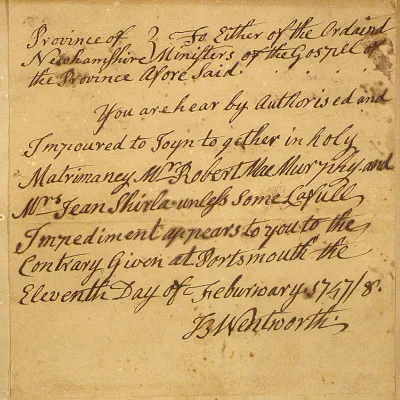 Province of } To Either of the Ordaind
Newhampshire } Ministers of the Gospel of
the Province Afore Said. . . . .
You are hear by Authorised and
Impoured to Joyn to gether in holy
Matrimaney Mr. Robert Mac Murphy and
Mrs Jean Shirla unless Some Lafull
Impediment appears to you to the
Contrary Given at Portsmouth the
Eleventh Day of Feburwary 1747/8.
B Wentworth